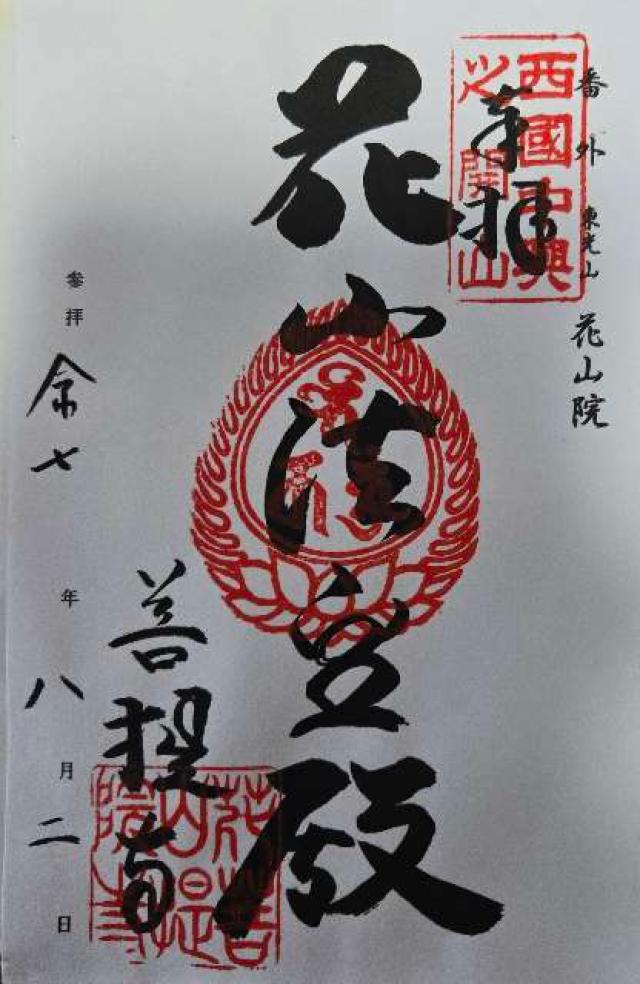 番外 東光山 花山院
西國中興
之開山
奉拝
花山法皇殿
菩提寺
花山院
菩提寺
參拝 令七年八月二日